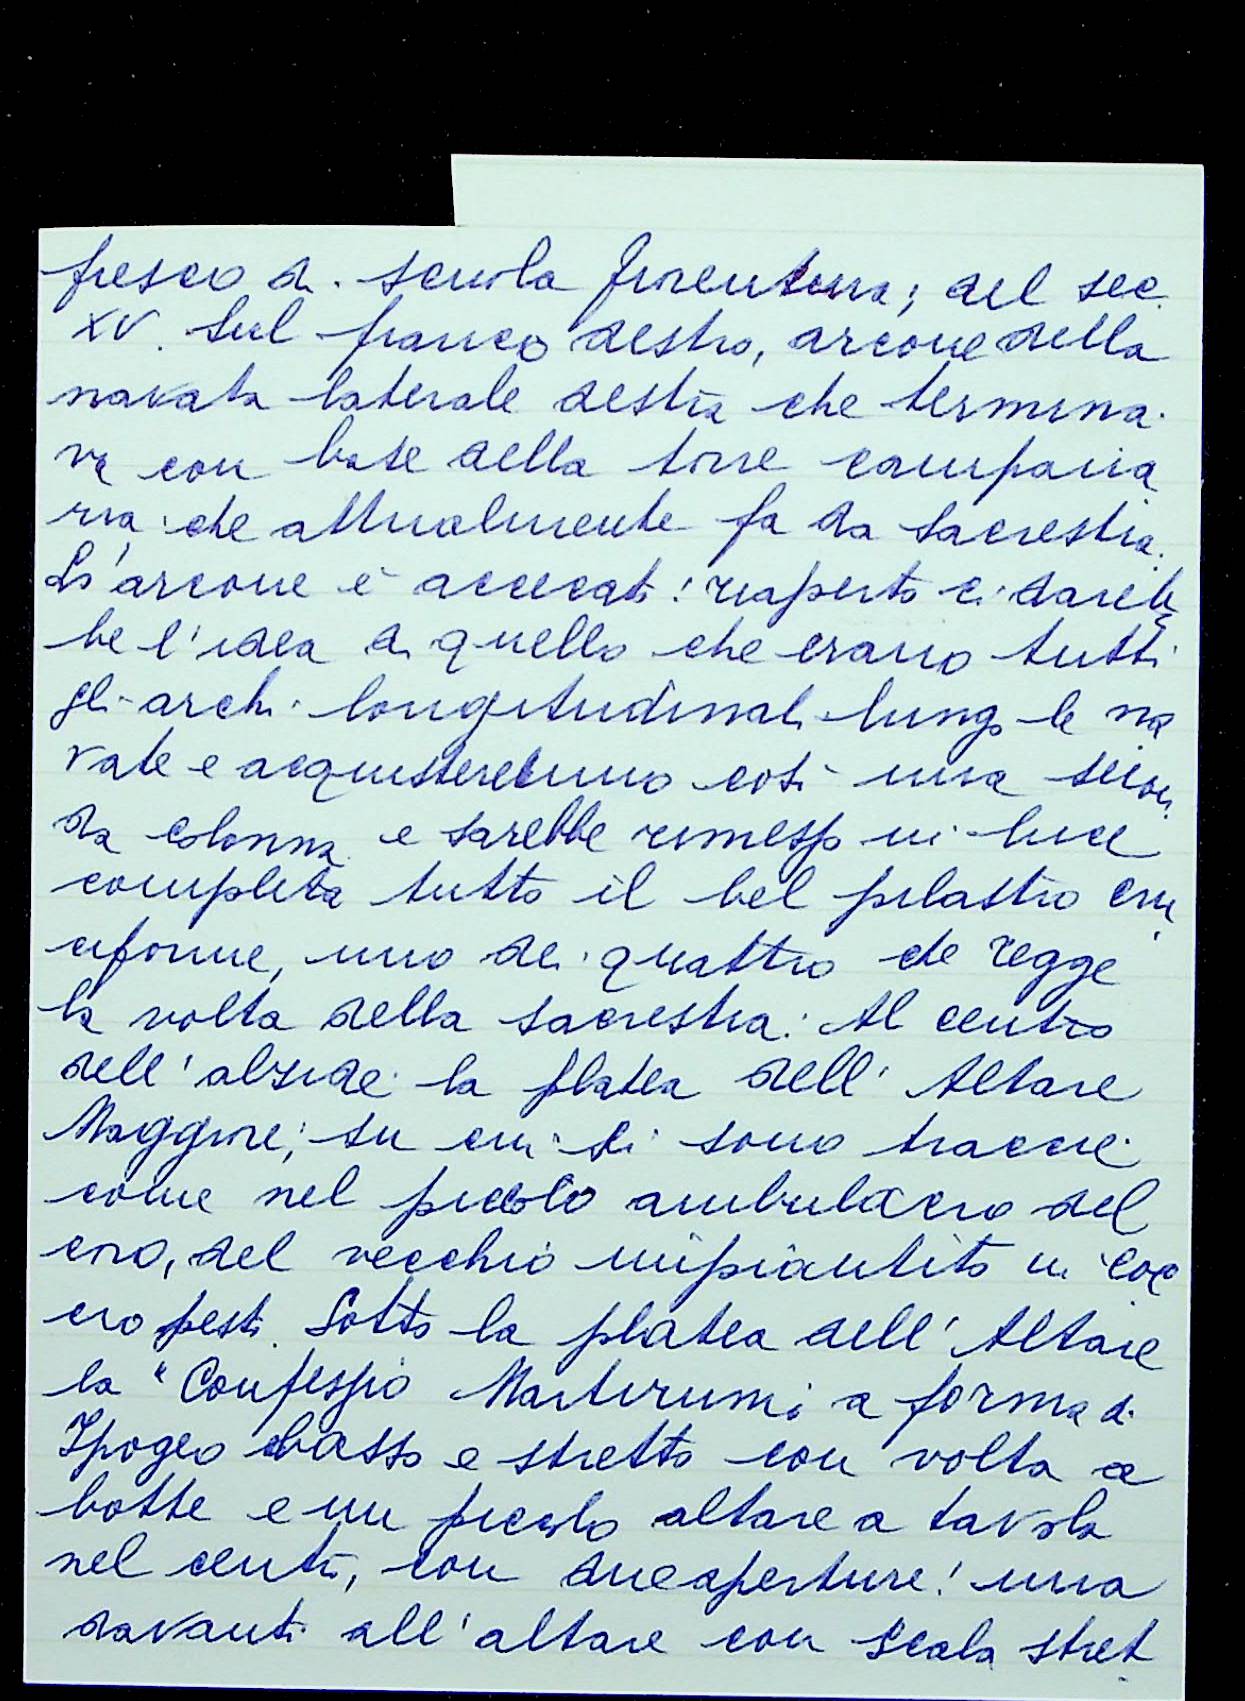 fresco di scuola fiorentina; del sec.
XV. Sul fianco destro, arcone della
navata laterale destra che termina-
va con base della torre campana
ria: che attualmente fa da sacrestia.
L'arcone è accecato: riaperto ci dareb
be l'idea di quello che erano tutti
gli archi longitudinali lungo le na
vate e acquisteremmo così una secon
da colonna e sarebbe rimesso in luce
completa tutto il bel pilastro cru
ciforme, uno dei quattro che regge
la volta della sacrestia. Al centro
dell'abside la platea dell'Altare
Maggiore; su cui si sono traccie
come nel piccolo ambulacro del
coro, del vecchio impiantito in coc
cio pesti. Sotto la platea dell'Altare
la "Confessio Martirum; a forma di
Ipogeo basso e stretto con volta a
botte e un piccolo altare a tavola
nel centro, con due aperture: una
davanti all'altare con scala stret